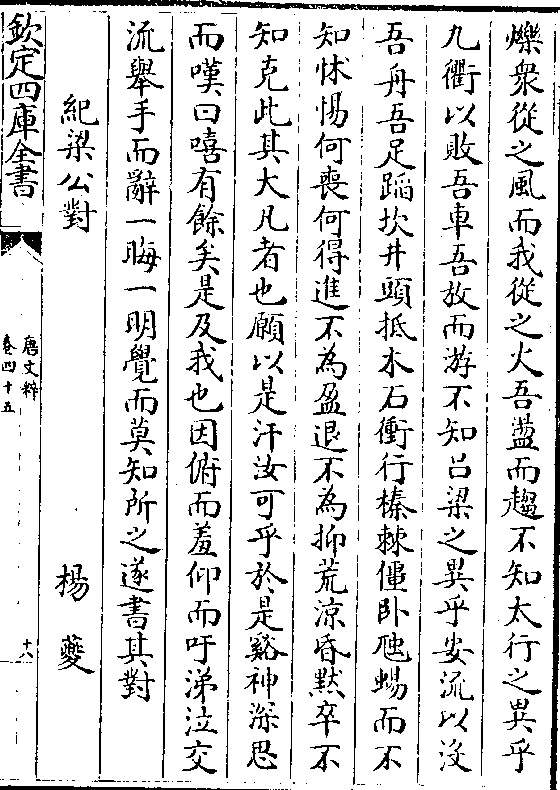 爍衆從之風而我從之火吾盪而趨不知太行之異乎
九衢以敗吾車吾放而游不知呂梁之異乎安流以没
吾舟吾足蹈坎井頭抵木石衝行榛棘僵卧虺蜴而不
知怵惕何喪何得進不為盈退不為抑荒涼昏黙卒不
知克此其大凡者也願以是汙汝可乎於是谿神深思
而嘆曰嘻有餘矣是及我也因俯而羞仰而吁涕泣交
流舉手而辭一晦一明覺而莫知所之遂書其對
紀梁公對 楊夔
欽定四庫全書
唐文粹
卷四十五
十八